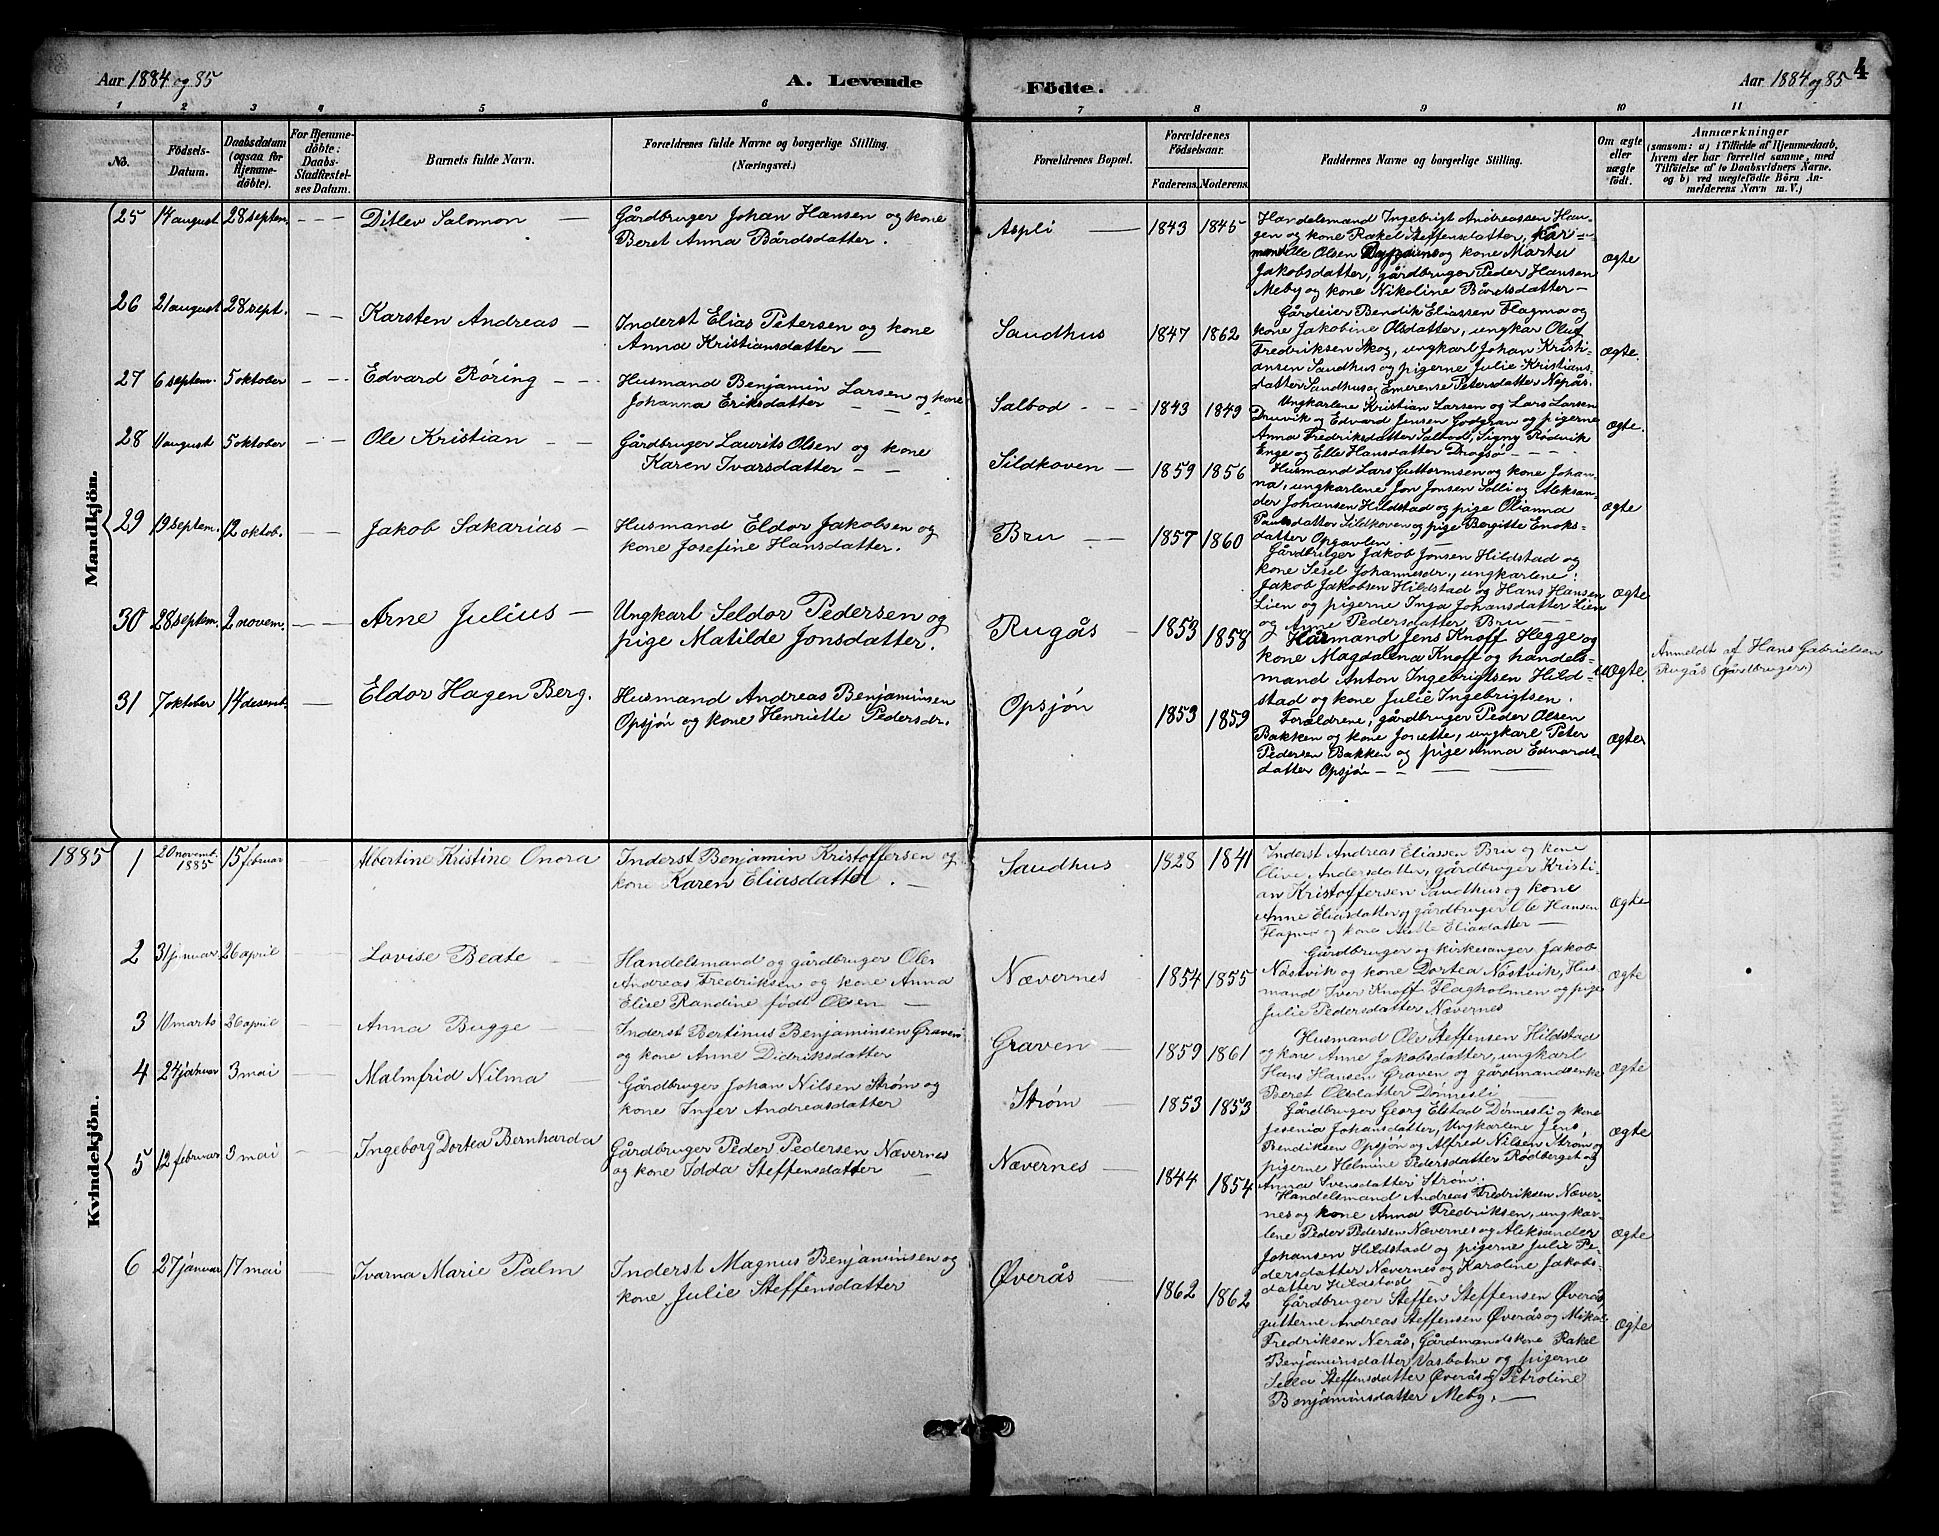 Aar 1884 og 85
A. Levende
Födte.
Aar 1884 og 85
4
1 2 3 4 5 6 7 8 9 10 11
No.
Födsels-
Datum.
Daabsdatum
(ogsaa for
Hjemme-
döbte).
For Hjemme-
döbte:
Daabs-
Stadfæstel-
ses Datum.
Barnets fulde Navn.
Forældrenes fulde Navne og borgerlige Stilling.
(Næringsvei.)
Forældrenes Bopæl.
Forældrenes
Födselsaar.
Faderens. Moderens.
Faddernes Navne og borgerlige Stilling.
Om ægte
eller
uægte
født.
Anmærkninger
(saasom: a) i Tilfælde af Hjemmedaab,
hvem der har forrettet samme, med
Tilföielse af to Daabsvidners Navne.
og b) ved uægtefödte Börn An-
melderens Navn m. V.)
Mandkjön.
25 14 august 28 septem. - - - Ditlev Salomon —
Gårdbruger Johan Hansen og kone
Beret Anna Bårdsdatter.
Aspli — 1843 1845
Handelsmand Ingebrigt Andreassen Hau-
gen og kone Rakel Steffensdatter, Kår-
mand Elle Olsen og kone Marter
Jakobsdatter, gårdbruger Peder Hansen
Meby og kone Nikoline Båretsdatter —
Ægte
26 21 august 28 sept. - - Karsten Andreas —
Inderst Elias Petersen og kone
Anna Kristiansdatter —
Sandhus 1847 1862
Gårdeier Bendik Eliassen Flagma og
kone Jakobine Olsdatter, ungkar Oluf
Fredriksen Skog, ungkarl Johan Kristi-
ansen Sandhus og pigerne Julie Kristians-
datter Sandhus og Emerense Petersdatter Nepås.
Ægte.
27 6 septem. 5 oktober - - - Edvard Röring - - -
Husmand Benjamin Larsen og kone
Johanna Eriksdatter - - -
Salbod - - - 1843 1849
Ungkarlene Kristian Larsen og Lars Larsen
Druvik og Edvard Jensen Godgrav og pigerne
Anna Fredriksdatter Salbod, Signy Rødvik
Enge og Elle Hansdatter Drogsø - - - -
Ægte.
28 11 august 5 oktober - - Ole Kristian - -
Gårdbruger Laurits Olsen og kone
Karen Ivarsdatter - -
Sildkoven — 1859 1856
Husmand Lars Guttormsen og kone Johan-
na, ungkarlene Jon Jonsen Solli og Aleksan-
der Johansen Hildstad og pige Ovanna
Paulsdatter Sildkoven og pige Bergitte Enoks-
datter Opgavlen. —
Ægte
29 19 septem. 12 oktob. - - Jakob Sakarias —
Husmand Eldor Jakobsen og
kone Josefine Hansdatter.
Bru - - 1857 1860
Gårdbruger Jakob Jonsen Hildstad og
kone Sesel Johannesdr., ungkarlene:
Jakob Jakobsen Hildstad og Hans Hansen
Lien og pigerne Inga Johansdatter Lien
og Anne Pedersdatter Bru - -
Ægte
30 28 septem. 2 novem. - - Arne Julius —
Ungkarl Seldor Pedersen og
pige Matilde Jonsdatter.
Rugås — 1853 1858
Kårmand Jens Knoff Hegge og
kone Magdalena Knoff og handels-
mand Anton Ingebrigtsen Hild-
stad og kone Julie Ingebrigtsen.
uÆgte.
Anmeldt af Hans Gabrielsen
Rugås (gårdbruger)
31 7 oktober 14 desemb. — Eldor Hagen Berg.
Husmand Andreas Benjaminsen
Opsjön og kone Henriette Pedersdr.
Opsjön 1853 1859
Forældrene, gårdbruger Peder Olsen
Bakken og kone Josette, ungkarl Peter
Pedersen Bakken og pige Anna Edvards-
datter Opsjön — - — —
Ægter
Kvindekjön.
1885 1 20 novemb. 1885 15 februar — Albertine Kristine Onora
Inderst Benjamin Kristoffersen og
kone Karen Eliasdatter. —
Sandhus 1828 1841
Inderst Andreas Eliassen Bru og kone
Olive Andersdatter, gårdbruger Kristi-
an Kristoffersen Sandhus og kone
Anne Eliasdatter og gårdbruger Ole Hansen
Flagma og kone Anne Eliasdatter —
Ægte
2 31 januar 26 april — Lovise Beate —
Handelsmand og gårdbruger Ole
Andreas Fredriksen og kone Anna
Elise Randine født Olsen —
Nævernes — 1854 1855
Gårdbruger og kirkesanger Jakob
Nöstvik og kone Dortea Nöstvik, Hus-
mand Iver Knoff Flagholmen og pige
Julie Pedersdatter Nævernes
Ægte
3 10 marts 26 april — Anna Bugge —
Inderst Bertinus Benjaminsen Graven
og kone Anne Didriksdatter
Graven — 1859 1861
Husmand Ole Steffensen Hildstad
og kone Anne Jakobsdatter, ungkarl
Hans Hansen Graven og gårdmandsenke
Beret Olsdatter Dönnesli —
Ægte
4 24 januar 3 mai — Malmfrid Nilma —
Gårdbruger Johan Nilsen Ström og
kone Inger Andreasdatter
Ström — 1853 1853
Gårdbruger Georg Elstad Dönnesli og kone
Jesenia Johansdatter, Ungkarlene Jens,
Bendiksen Opsjön og Alfred Nilsen Ström og
pigerne Helmine Pedersdatter Rödberget og
Anna Svensdatter Ström.
Ægte
5 12 februar 3 mai — Ingeborg Dortea Bernharda
Gårdbruger Peder Pedersen Nævernes
og kone Idda Steffensdatter —
Nævernes — 1844 1854
Handelsmand Andreas Fredriksen Næver-
nes og kone Anna Fredriksen, ungkar-
lene Peder Pedersen Nævernes og Aleksander
Johansen Hildstad og pigerne Julie Pe-
dersdatter Nævernes og Karoline Jakobs-
datter Hildstad
Ægte
6 27 januar 17 mai — Ivarna Marie Palm
Inderst Magnus Benjaminsen og
kone Julie Steffensdatter
Øverås — 1862 1862
Gårdbruger Steffen Steffensen Øverås,
gutterne Andreas Steffensen Øverås og Mikal
Fredriksen Nerås, Gårdmandskone Rakel
Benjaminsdatter Vasbotne og pigerne
Sella Steffensdatter Øverås og Petroline
Benjaminsdatter Meby. —
Ægte